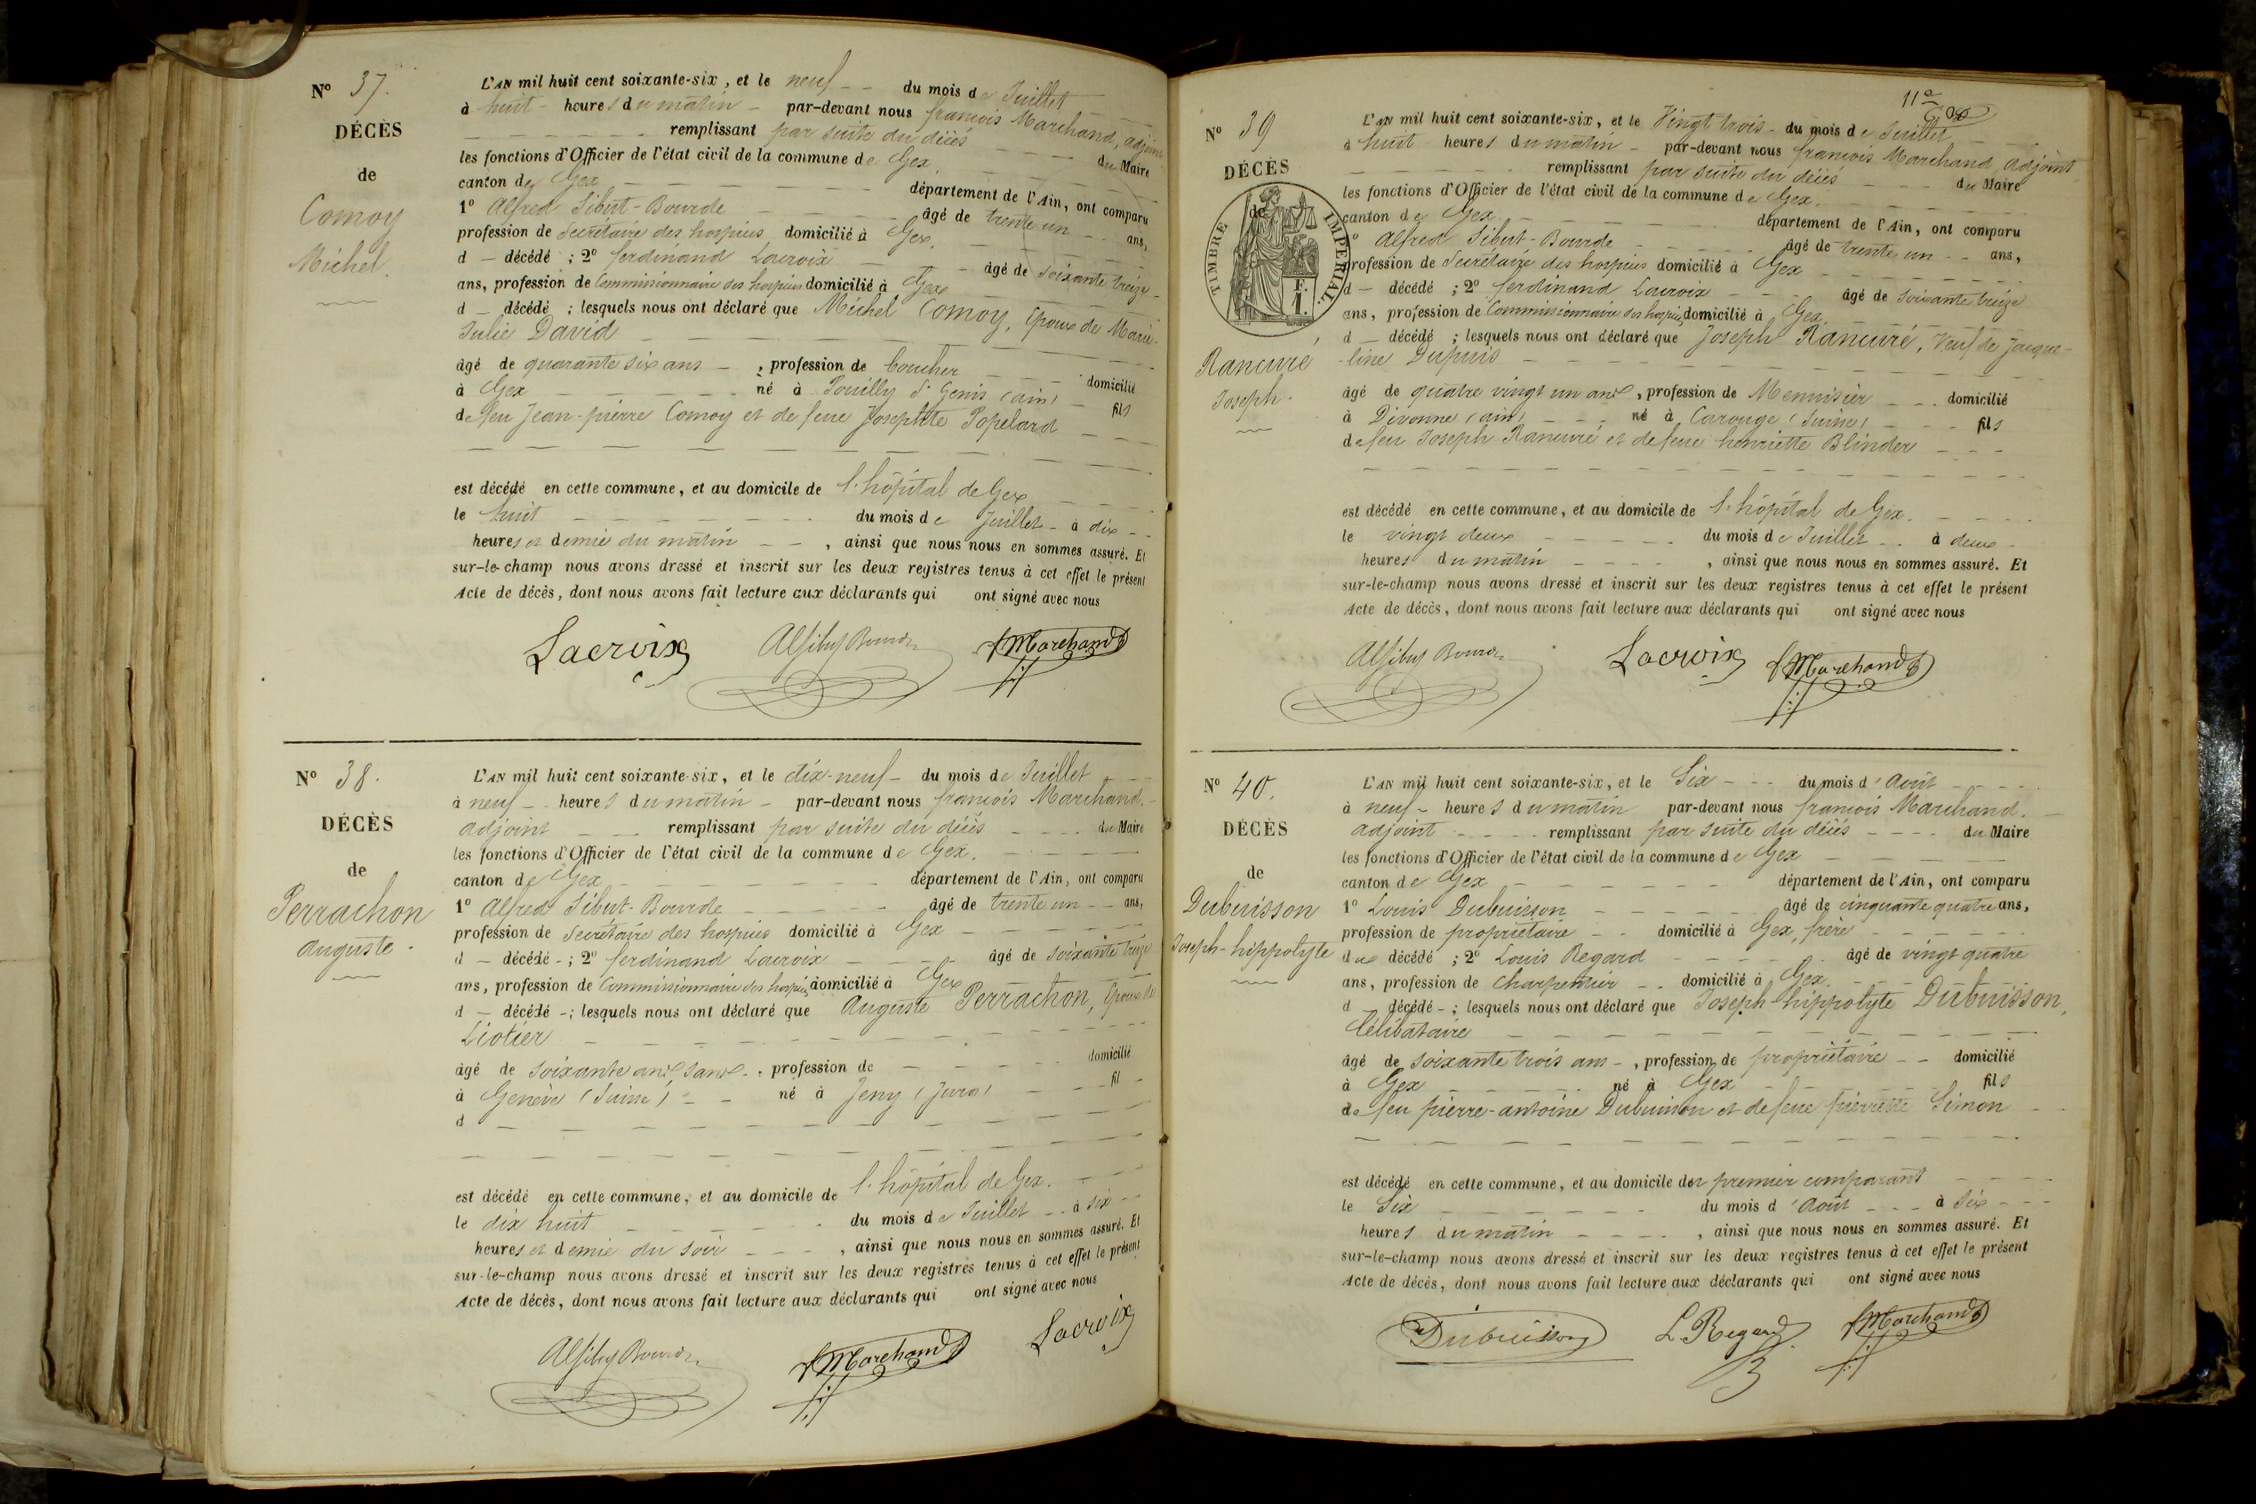 N° 37.
DÉCÈS
de
Comoy
Michel.
L'AN mil huit cent soixante-six, et le neuf du mois de Juillet
à huit heures du matin par-devant nous françois Marchand, adjoint
remplissant par suite du décès du Maire
les fonctions d'Officier de l'état civil de la commune de Gex
canton de Gex département de l'Ain, ont comparu
1° Alfred Sibut-Bourde âgé de trente un ans,
profession de Secrétaire des hospices domicilié à Gex.
d décédé ; 2° ferdinand Lacroix âgé de soixante treize
ans, profession de Commissionnaire des hospices domicilié à Gex
d décédé ; lesquels nous ont déclaré que Michel Comoy, Epoux de Marie
Julie David
âgé de quarante six ans , profession de boucher domicilié
à Gex né à Pouilly St Genis (ain) fils
de feu Jean-pierre Comoy et de feue Josephte Popelard
est décédé en cette commune, et au domicile de l'hôpital de Gex
le huit du mois de Juillet à dix
heures et demie du matin , ainsi que nous nous en sommes assuré. Et
sur-le-champ nous avons dressé et inscrit sur les deux registres tenus à cet effet le présent
Acte de décès, dont nous avons fait lecture aux déclarants qui ont signé avec nous
Lacroix Marchand
N° 38.
DÉCÈS
de
Perrachon
auguste.
L'AN mil huit cent soixante-six, et le dix-neuf du mois de Juillet
à neuf heures du matin par-devant nous françois Marchand.
adjoint remplissant par suite du décès du Maire
les fonctions d'Officier de l'état civil de la commune de Gex.
canton de Gex département de l'Ain, ont comparu
1° Alfred Sibut-Bourde âgé de trente un ans,
profession de Secrétaire des hospices domicilié à Gex
d décédé ; 2° ferdinand Lacroix âgé de soixante treize
ans, profession de Commissionnaire des hospices domicilié à Gex
d décédé ; lesquels nous ont déclaré que Auguste Perrachon, Epoux de
Liotier
âgé de soixante ans sans , profession de domicilié
à Genève (Suisse) né à Jeny (Jura) fil
d
est décédé en cette commune, et au domicile de l'hôpital de Gex.
le dix huit du mois de Juillet à six
heures et demie du soir , ainsi que nous nous en sommes assuré. Et
sur-le-champ nous avons dressé et inscrit sur les deux registres tenus à cet effet le présent
Acte de décès, dont nous avons fait lecture aux déclarants qui ont signé avec nous
Marchand Lacroix
11e
N° 39
DÉCÈS
de
TIMBRE IMPÉRIAL.
Rancuré
Joseph.
L'AN mil huit cent soixante-six, et le Vingt trois du mois de Juillet
à huit heures du matin par-devant nous françois Marchand, adjoint
remplissant par suite du décès du Maire
les fonctions d'Officier de l'état civil de la commune de Gex.
canton de Gex département de l'Ain, ont comparu
1° Alfred Sibut-Bourde âgé de trente un ans,
profession de Secrétaire des hospices domicilié à Gex
d décédé ; 2° ferdinand Lacroix âgé de soixante treize
ans, profession de Commissionnaire des hospices domicilié à Gex
d décédé ; lesquels nous ont déclaré que Joseph Rancuré, Veuf de Jacque-
-line Dupuis
âgé de quatre vingt un ans, profession de Menuisier domicilié
à Divonne (ain) né à Carouge (Suisse) fils
de feu Joseph Rancuré et de feue henriette Blinder
est décédé en cette commune, et au domicile de l'hôpital de Gex.
le vingt deux du mois de Juillet à deux
heures du matin , ainsi que nous nous en sommes assuré. Et
sur-le-champ nous avons dressé et inscrit sur les deux registres tenus à cet effet le présent
Acte de décès, dont nous avons fait lecture aux déclarants qui ont signé avec nous
Lacroix Marchand
N° 40.
DÉCÈS
de
Dubuisson
Joseph-hippolyte
L'AN mil huit cent soixante-six, et le Six du mois d'Août
à neuf heures du matin par-devant nous françois Marchand.
adjoint remplissant par suite du décès du Maire
les fonctions d'Officier de l'état civil de la commune de Gex
canton de Gex département de l'Ain, ont comparu
1° Louis Dubuisson âgé de cinquante quatre ans,
profession de propriétaire domicilié à Gex, frère
du décédé ; 2° Louis Regard âgé de vingt quatre
ans, profession de charpentier domicilié à Gex.
d décédé ; lesquels nous ont déclaré que Joseph-hippolyte Dubuisson,
Célibataire
âgé de soixante trois ans , profession de propriétaire domicilié
à Gex né à Gex fils
de feu pierre-antoine Dubuisson et de feue pierrette Simon
est décédé en cette commune, et au domicile du premier comparant
le Six du mois d'Août à six
heures du matin , ainsi que nous nous en sommes assuré. Et
sur-le-champ nous avons dressé et inscrit sur les deux registres tenus à cet effet le présent
Acte de décès, dont nous avons fait lecture aux déclarants qui ont signé avec nous
Dubuisson L. Regard Marchand